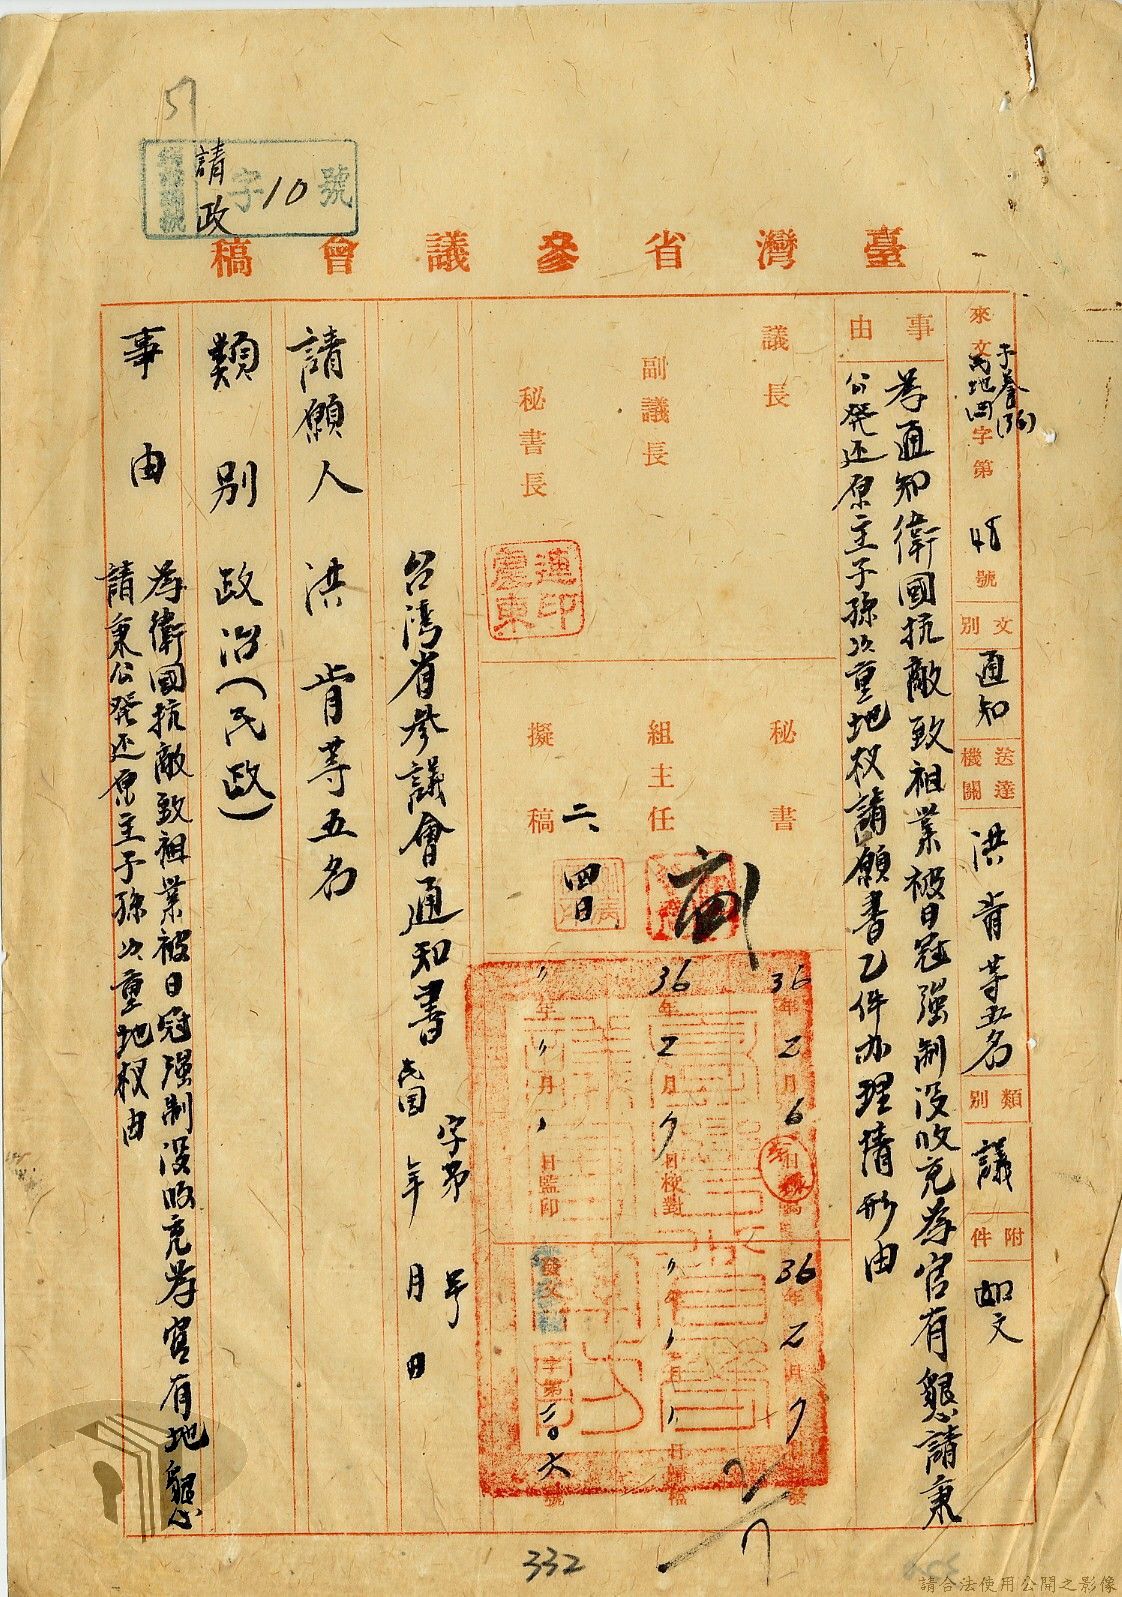 請政字10號
臺灣省參議會稿
來文 子養(36)民地四字第48號
文別 通知
送達機關 洪肯等五名
類別 議
附件 如文
事由 為通知衛國抗敵致祖業被日冠强制没收充為官有懇請秉
公発还原主子孫以重地权請願書乙件办理情形由
議長
副議長
秘書長
連震東印
秘書
組主任
擬稿 二、四日
36年2月6日
36年2月7日校對
〃年〃月〃日監印
36年2月7日
〃年〃月〃日歸檔
發文 字第二〇六號
台湾省參議會通知書 民国 年 月 日
字第 号
請願人 洪肯等五名
類別 政治(民政)
事由 為衛國抗敵致祖業被日冠强制没收充為官有地懇
請秉公発还原主子孫以重地权由
332
請合法使用公開之影像